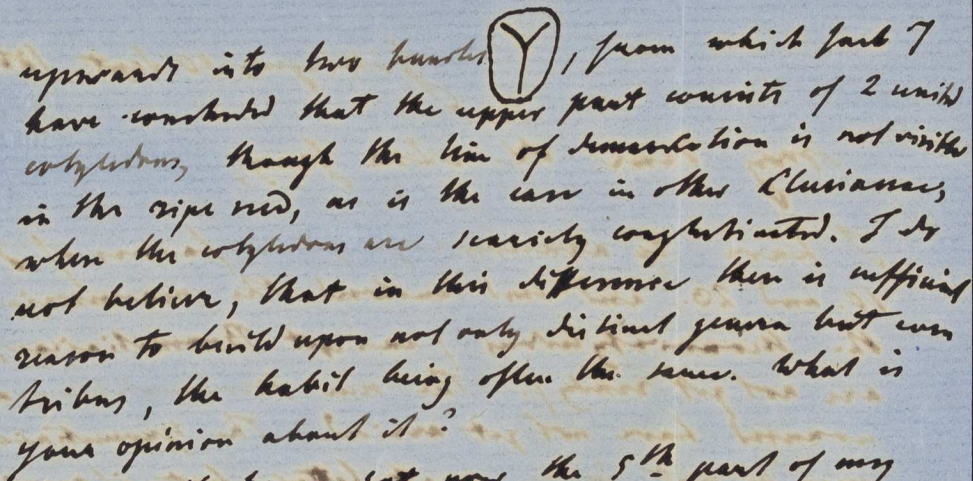 upwards into two bundles , from which fact I
have concluded that the upper part consists of 2 united
cotyledons, though the line of demarcation is not visible
in the ripe seed, as is the case in other Clusiaceae,
where the cotyledons are scarcely conglutinated. I do
not believe, that in this difference there is sufficient
reason to build upon not only distinct genera but even
tribes, the habit being often the same. What is
your opinion about it?
the 5th part of my